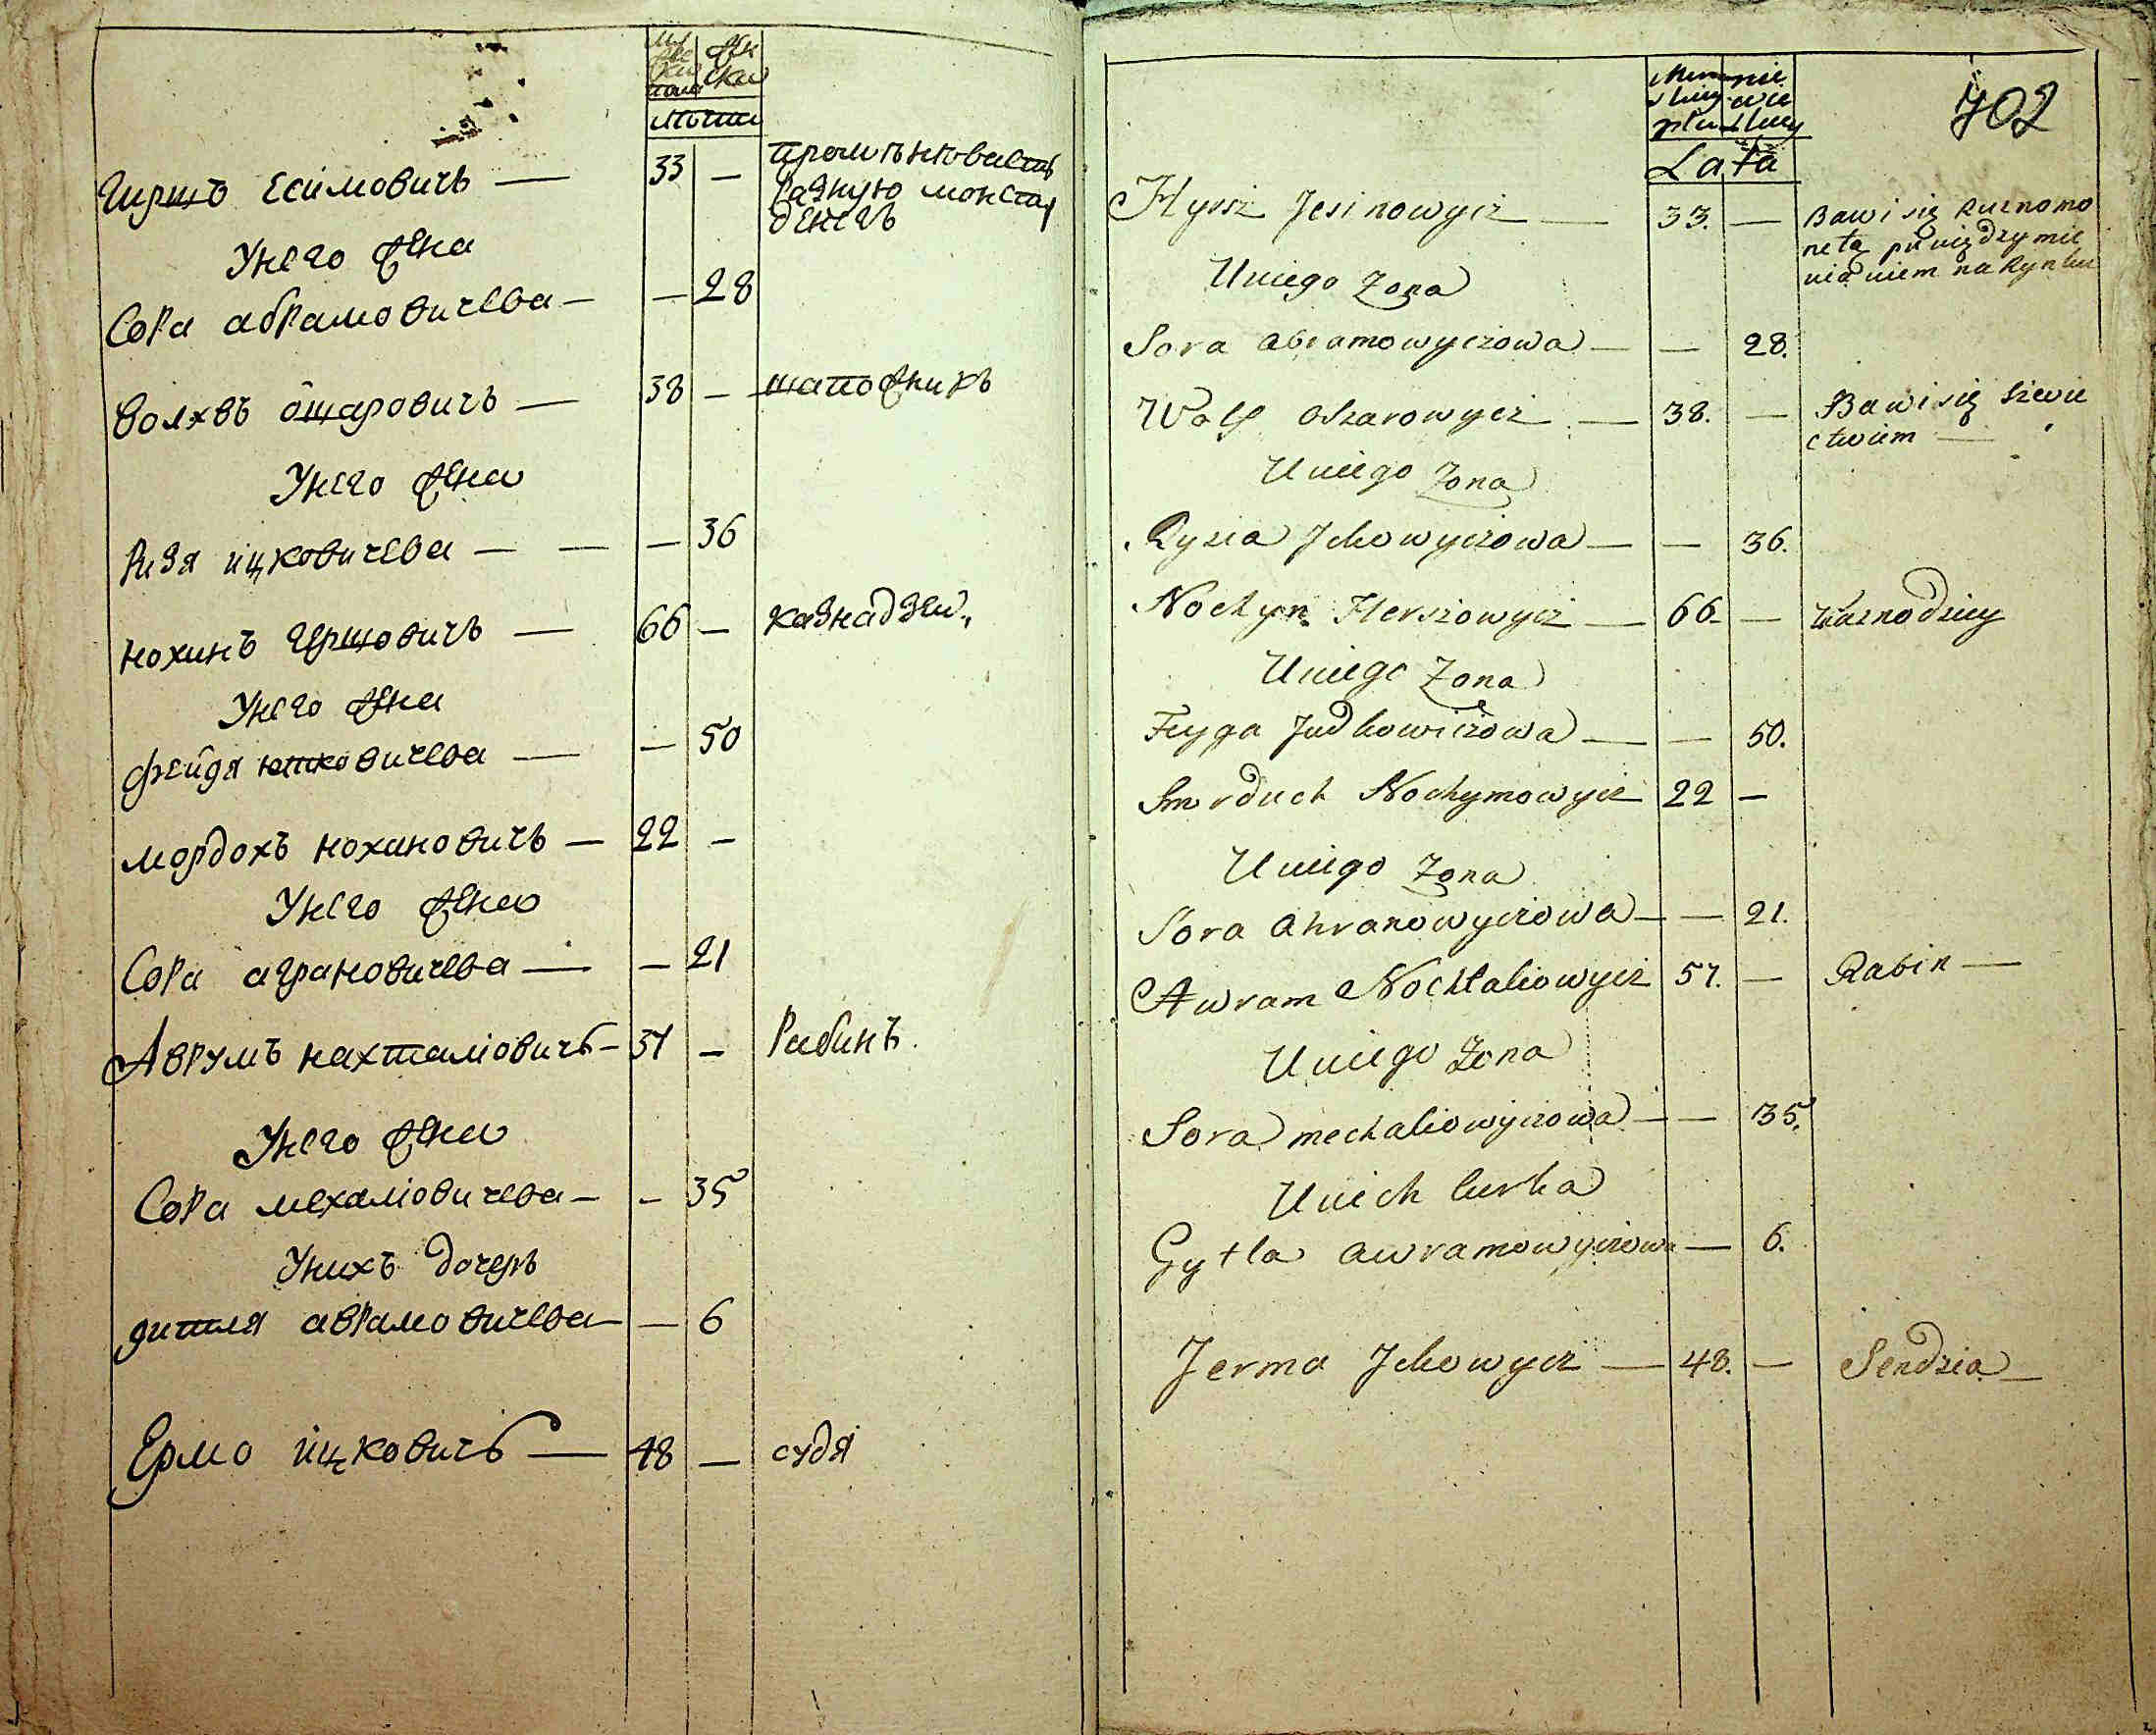 мужеска пола
женска
лѣта
Гиршъ Есiмовичъ — 33 —
промѣнюваетъ
разную монетау
денегъ
Унего жена
Сора абрамовичева — — 28
Волхвъ ошаровичъ — 38 — шапожникъ
Унего жена
Ризя ицковичева — — — 36
нохинъ гершовичъ — 66 — казнадзеи.
Унего жена
фейдя ютковичева — — 50
мордохъ нохановичъ — 22 —
Унего жена
Сора аграновичева — — 21
Аврумъ нахталiовичъ — 57 — Рабинъ.
Унего жена
Сора мехалiовичева — — 35
Унихъ дочеръ
гитля аврамовичева — — 6
Ермо ицковичъ — 48 — судя
702
Lata
Hyrsz Jesinowycz — 33. — Bawi się Ruznomo
netą pieniędzy mie
nianiem na Rynku
Uniego Zona
Sora abramowyczowa — — 28.
Wolf oszarowycz — 38. — Bawi się szewie
ctwiem —
Uniego Zona
Ryzia Jckowyczowa — — 36.
Nochyn Herszowycz — 66. — Kaznodziey
Uniego Zona
Feyga Judkowiczowa — — 50.
Smrduch Nochymowycz 22 —
Uniego Zona
Sora ahranowyczowa — — 21.
Awram Nochtaliowycz 57. — Rabin —
Uniego Zona
Sora mechaliowyczowa — — 35.
Unich Curka
Gytla awramowyczowa — 6.
Jerma Jckowycz — 48. — Sendzia —